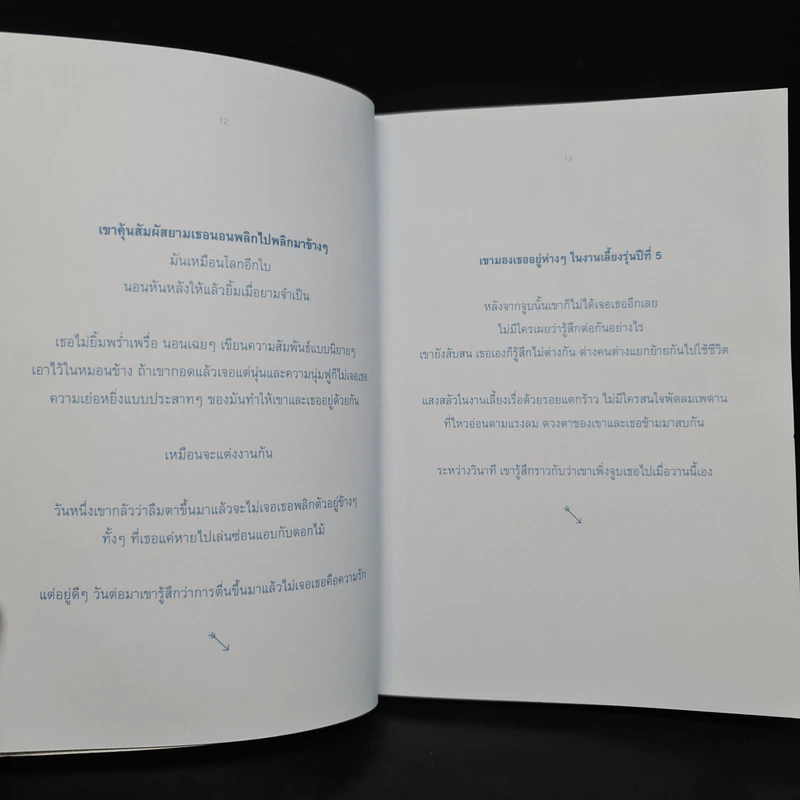 12
เขาคุ้นสัมผัสยามเธอนอนพลิกไปพลิกมาข้างๆ
มันเหมือนโลกอีกใบ
นอนหันหลังให้แล้วยิ้มเมื่อยามจำเป็น
เธอไม่ยิ้มพร่ำเพรื่อ นอนเฉยๆ เขียนความสัมพันธ์แบบนิยายๆ
เอาไว้ในหมอนข้าง ถ้าเขากอดแล้วเจอแต่นุ่นและความนุ่มฟูก็ไม่เจอเธอ
ความเย่อหยิ่งแบบประสาทๆ ของมันทำให้เขาและเธออยู่ด้วยกัน
เหมือนจะแต่งงานกัน
วันหนึ่งเขากลัวว่าลืมตาขึ้นมาแล้วจะไม่เจอเธอพลิกตัวอยู่ข้างๆ
ทั้งๆ ที่เธอแค่หายไปเล่นซ่อนแอบกับดอกไม้
แต่อยู่ดีๆ วันต่อมาเขารู้สึกว่าการตื่นขึ้นมาแล้วไม่เจอเธอคือความรัก
13
เขามองเธออยู่ห่างๆ ในงานเลี้ยงรุ่นปีที่ 5
หลังจากจูบนั้นเขาก็ไม่ได้เจอเธออีกเลย
ไม่มีใครเผยว่ารู้สึกต่อกันอย่างไร
เขายังสับสน เธอเองก็รู้สึกไม่ต่างกัน ต่างคนต่างแยกย้ายกันไปใช้ชีวิต
แสงสลัวในงานเลี้ยงเรื่อด้วยรอยแตกร้าว ไม่มีใครสนใจพัดลมเพดาน
ที่ไหวอ่อนตามแรงลม ดวงตาของเขาและเธอข้ามมาสบกัน
ระหว่างวินาที เขารู้สึกราวกับว่าเขาเพิ่งจูบเธอไปเมื่อวานนี้เอง